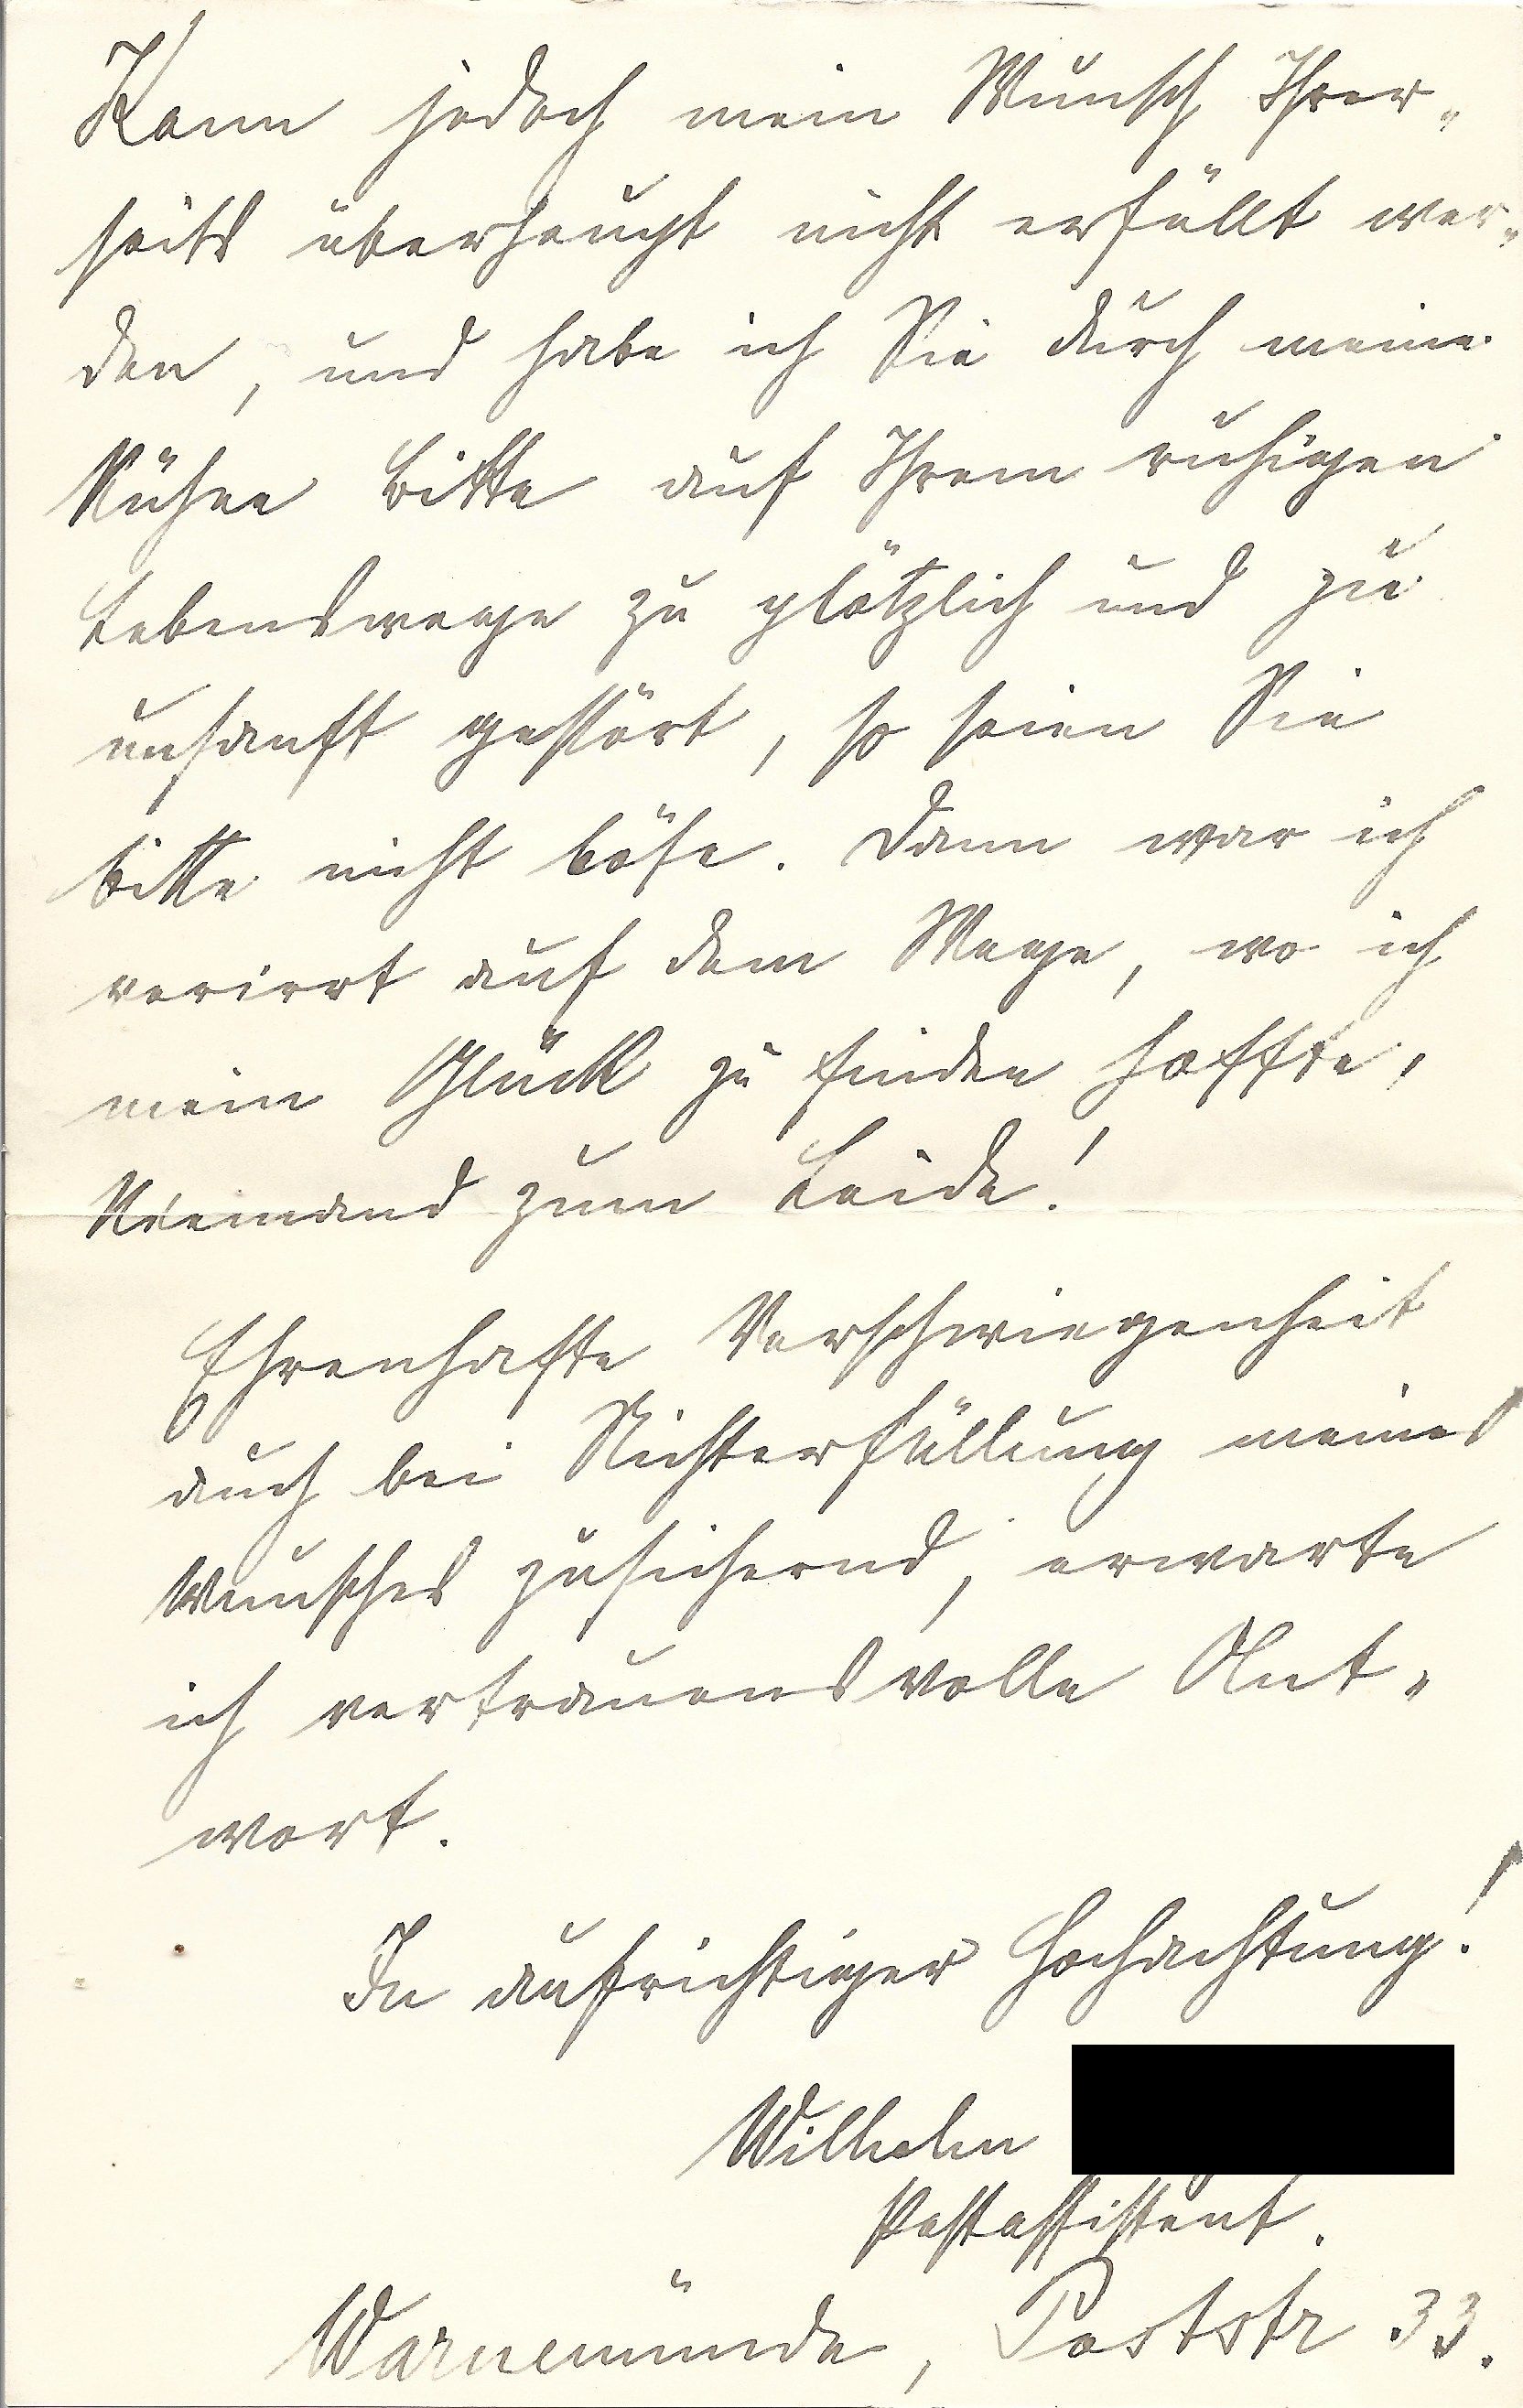 Kann jedoch mein Wunsch Ihrer-
seits überhaupt nicht erfüllt wer-
den, und habe ich Sie durch meine
kühne Bitte auf Ihrem ruhigen
Lebenswege zu plötzlich und zu
unsanft gestört, so seien Sie
bitte nicht böse. Dann war ich
verirrt auf dem Wege, wo ich
mein Glück zu finden hoffte,
Niemand zum Leide!
Ehrenhafte Verschwiegenheit
auch bei Nichterfüllung meines
Wunsches zusichernd, erwarte
ich vertrauensvolle Ant-
wort.
In aufrichtiger Hochachtung!
Wilhelm
Postassistent.
Warnemünde, Poststr 33.